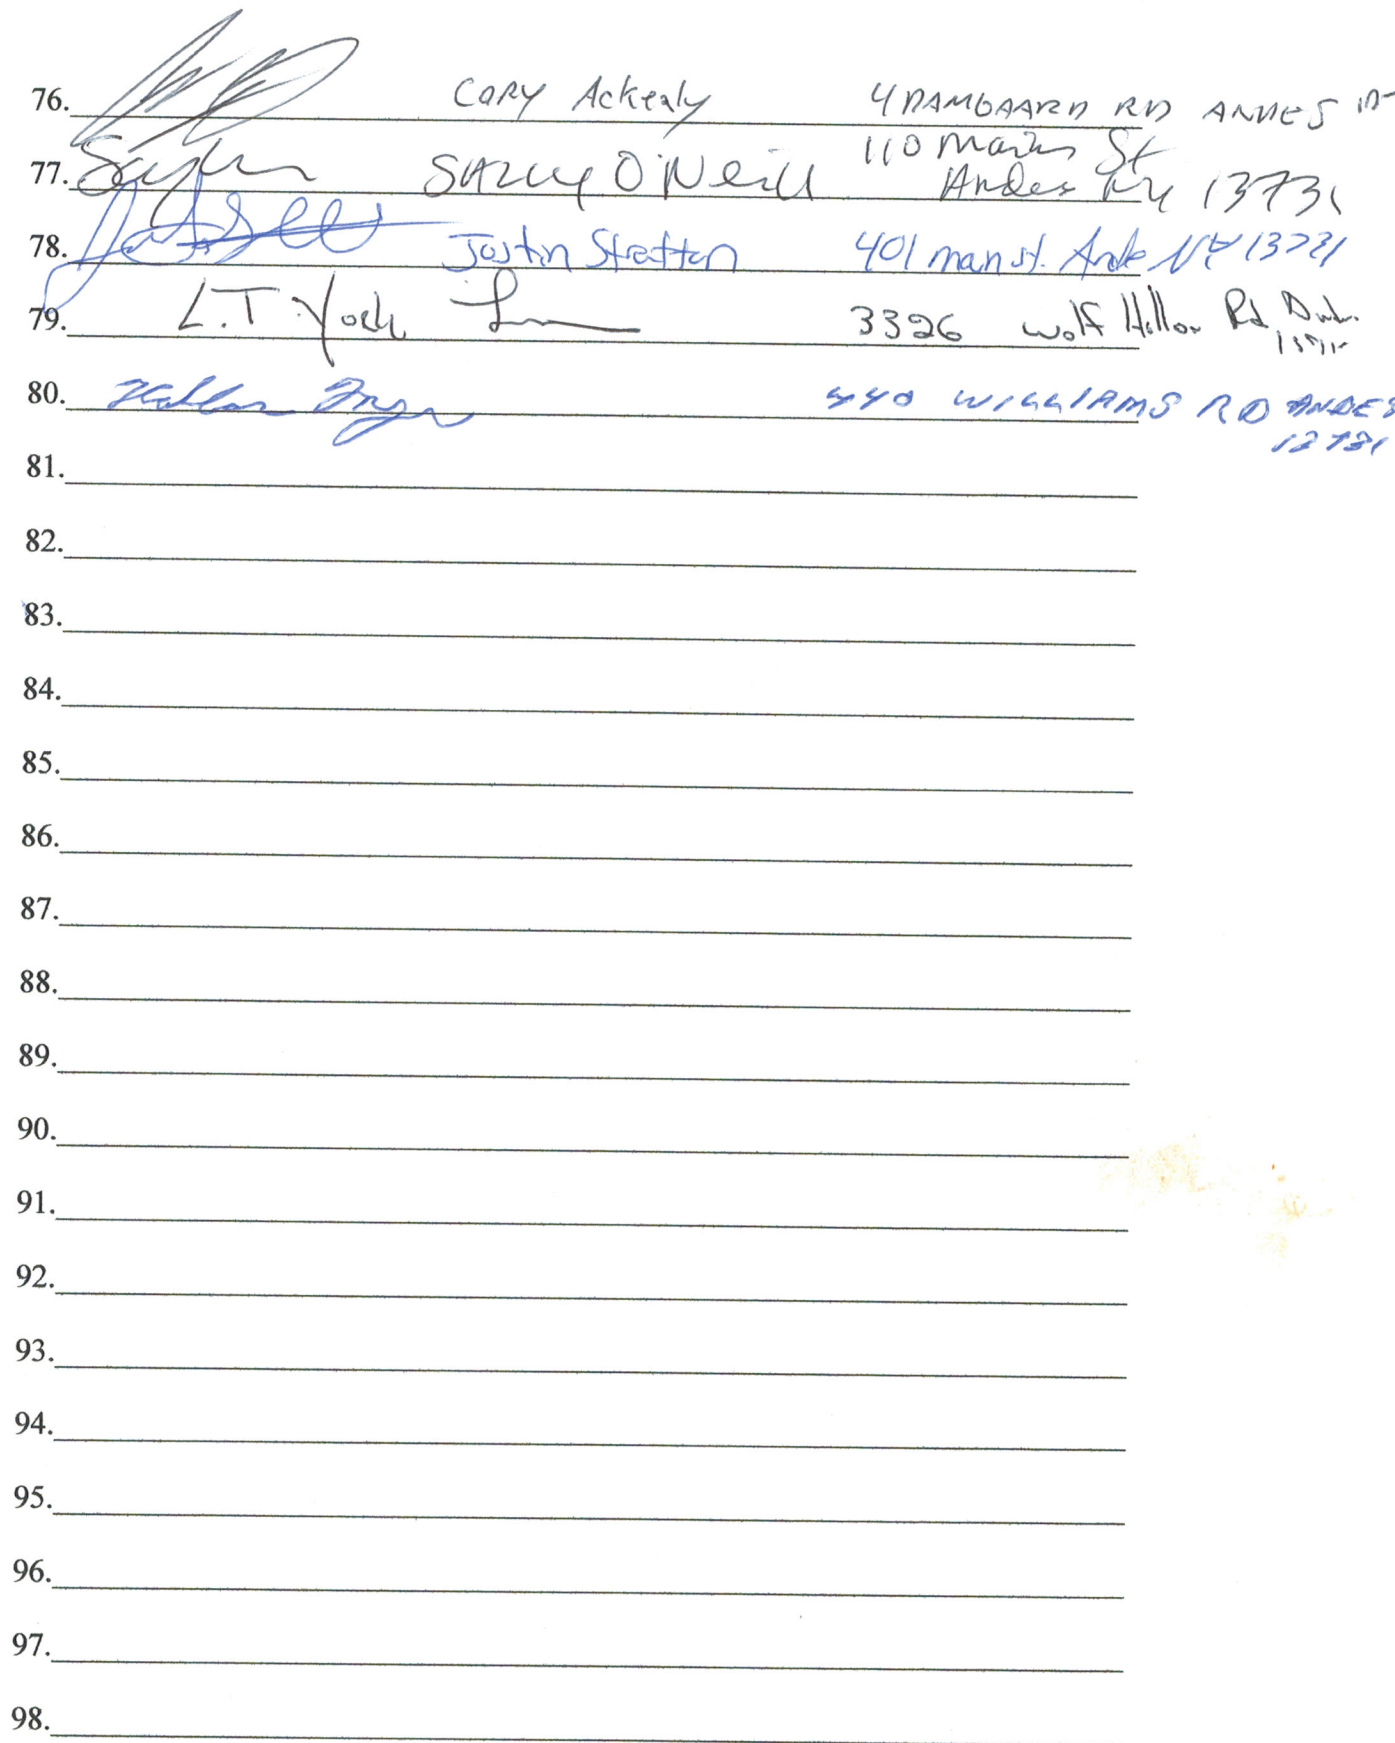 76. CORY Ackerly 4 DAMGAARD RD ANDES
77. SALLY O'Neill 110 Main St
Andes NY 13731
78. Justin Stratton 401 main st. Ande NY 13731
79. L.T. York 3326 Wolf Hollow Rd
80. 440 WILLIAMS RD ANDES
13731
81.
82.
83.
84.
85.
86.
87.
88.
89.
90.
91.
92.
93.
94.
95.
96.
97.
98.